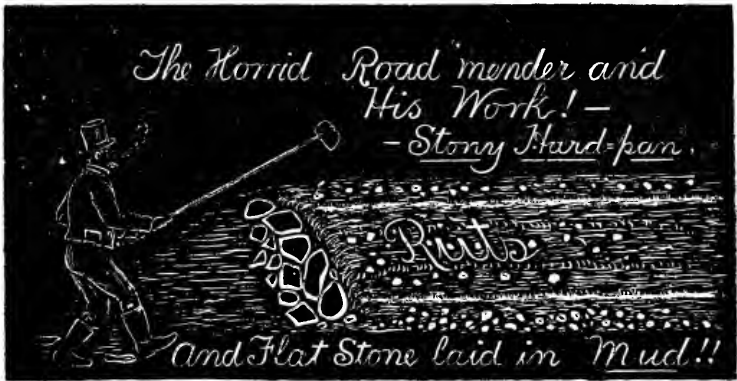 The Horrid Road mender and
His Work! —
- Stony Hard=pan.
Ruts
and Flat Stone laid in Mud!!